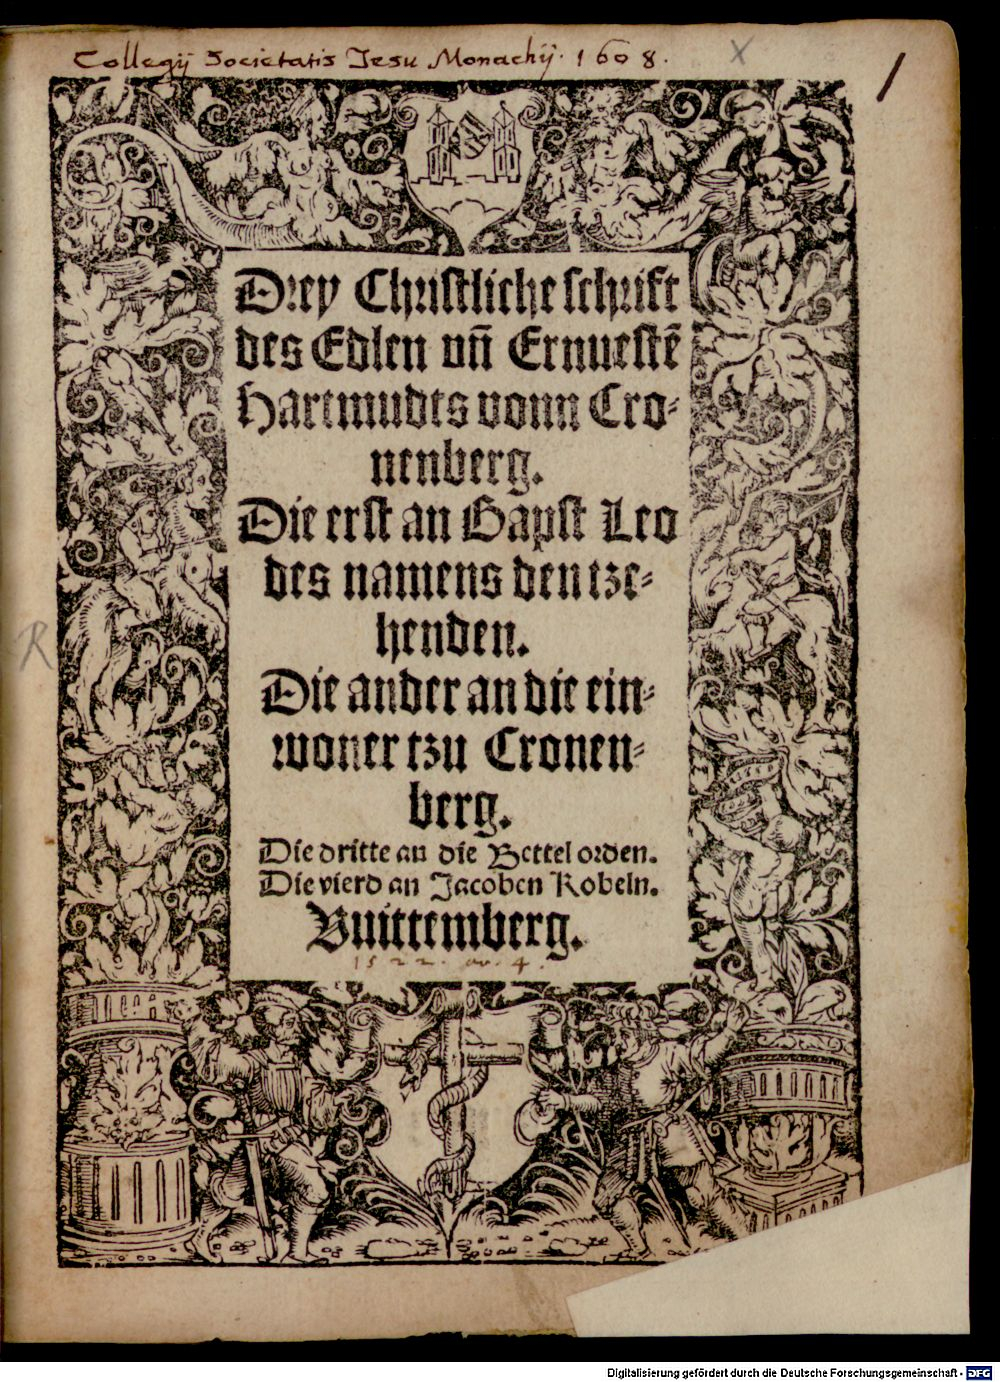 Collegij Societatis Iesu Monachij. 1608.
X
1
Drey Christliche schrift
des Edlen vn̄ Ernuestē
Hartmudts vonn Cro⸗
nenberg.
Die erst an Bapst Leo
des namens den tze⸗
henden.
Die ander an die ein⸗
woner tzu Cronen⸗
berg.
Die dritte an die Bettel orden.
Die vierd an Jacoben Kobeln.
Vuittemberg.
1522. av. 4.
R
Digitalisierung gefördert durch die Deutsche Forschungsgemeinschaft - DFG